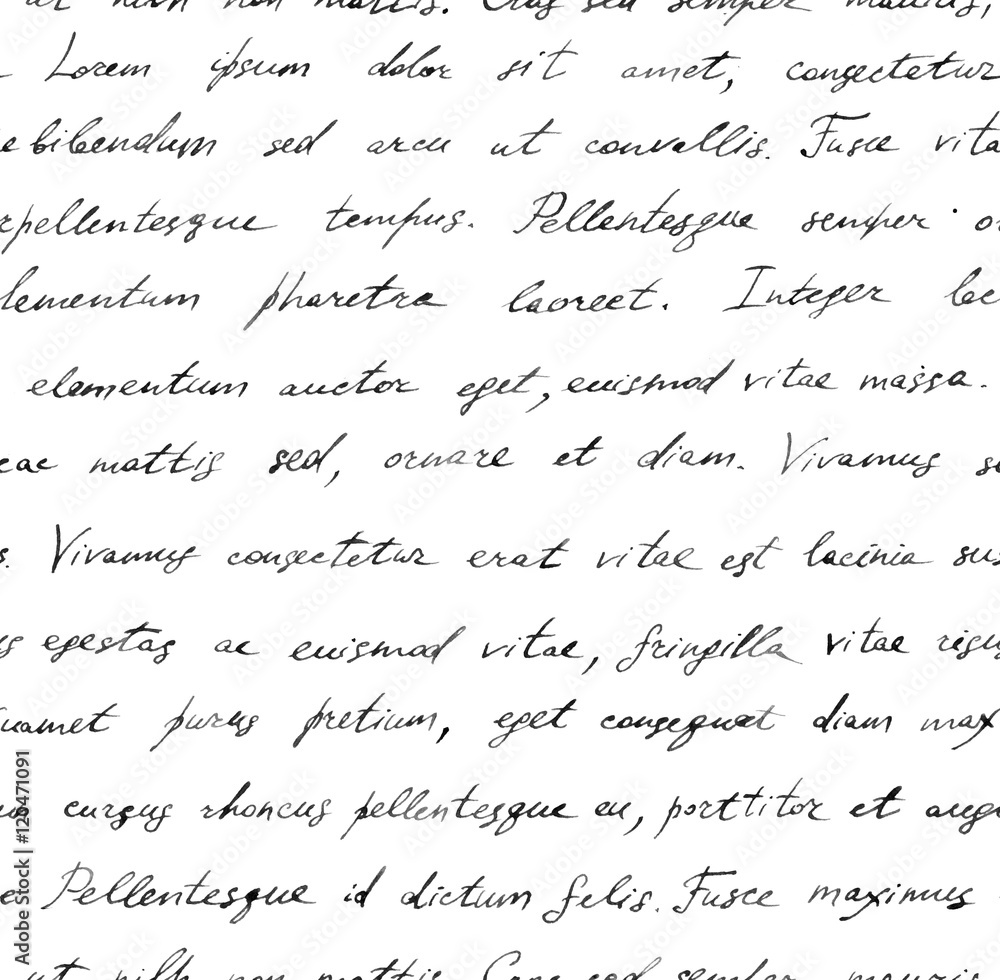 mattis. Cras sed semper mauris,
Lorem ipsum dolor sit amet, consectetur
bibendum sed arcu ut convallis. Fusce vita
rpellentesque tempus. Pellentesque semper
lementum pharetra laoreet. Integer
elementum auctor eget, euismod vitae massa.
cac mattis sed, ornare et diam. Vivamus
s. Vivamus consectetur erat vitae est lacinia sus
us egestas ac euismod vitae, fringilla vitae risus
amet purus pretium, eget consequat diam max
cursus rhoncus pellentesque eu, porttitor et
Pellentesque id dictum felis. Fusce maximus
ut nibh non mattis. Cras sed semper mauris
Adobe Stock | #120471091